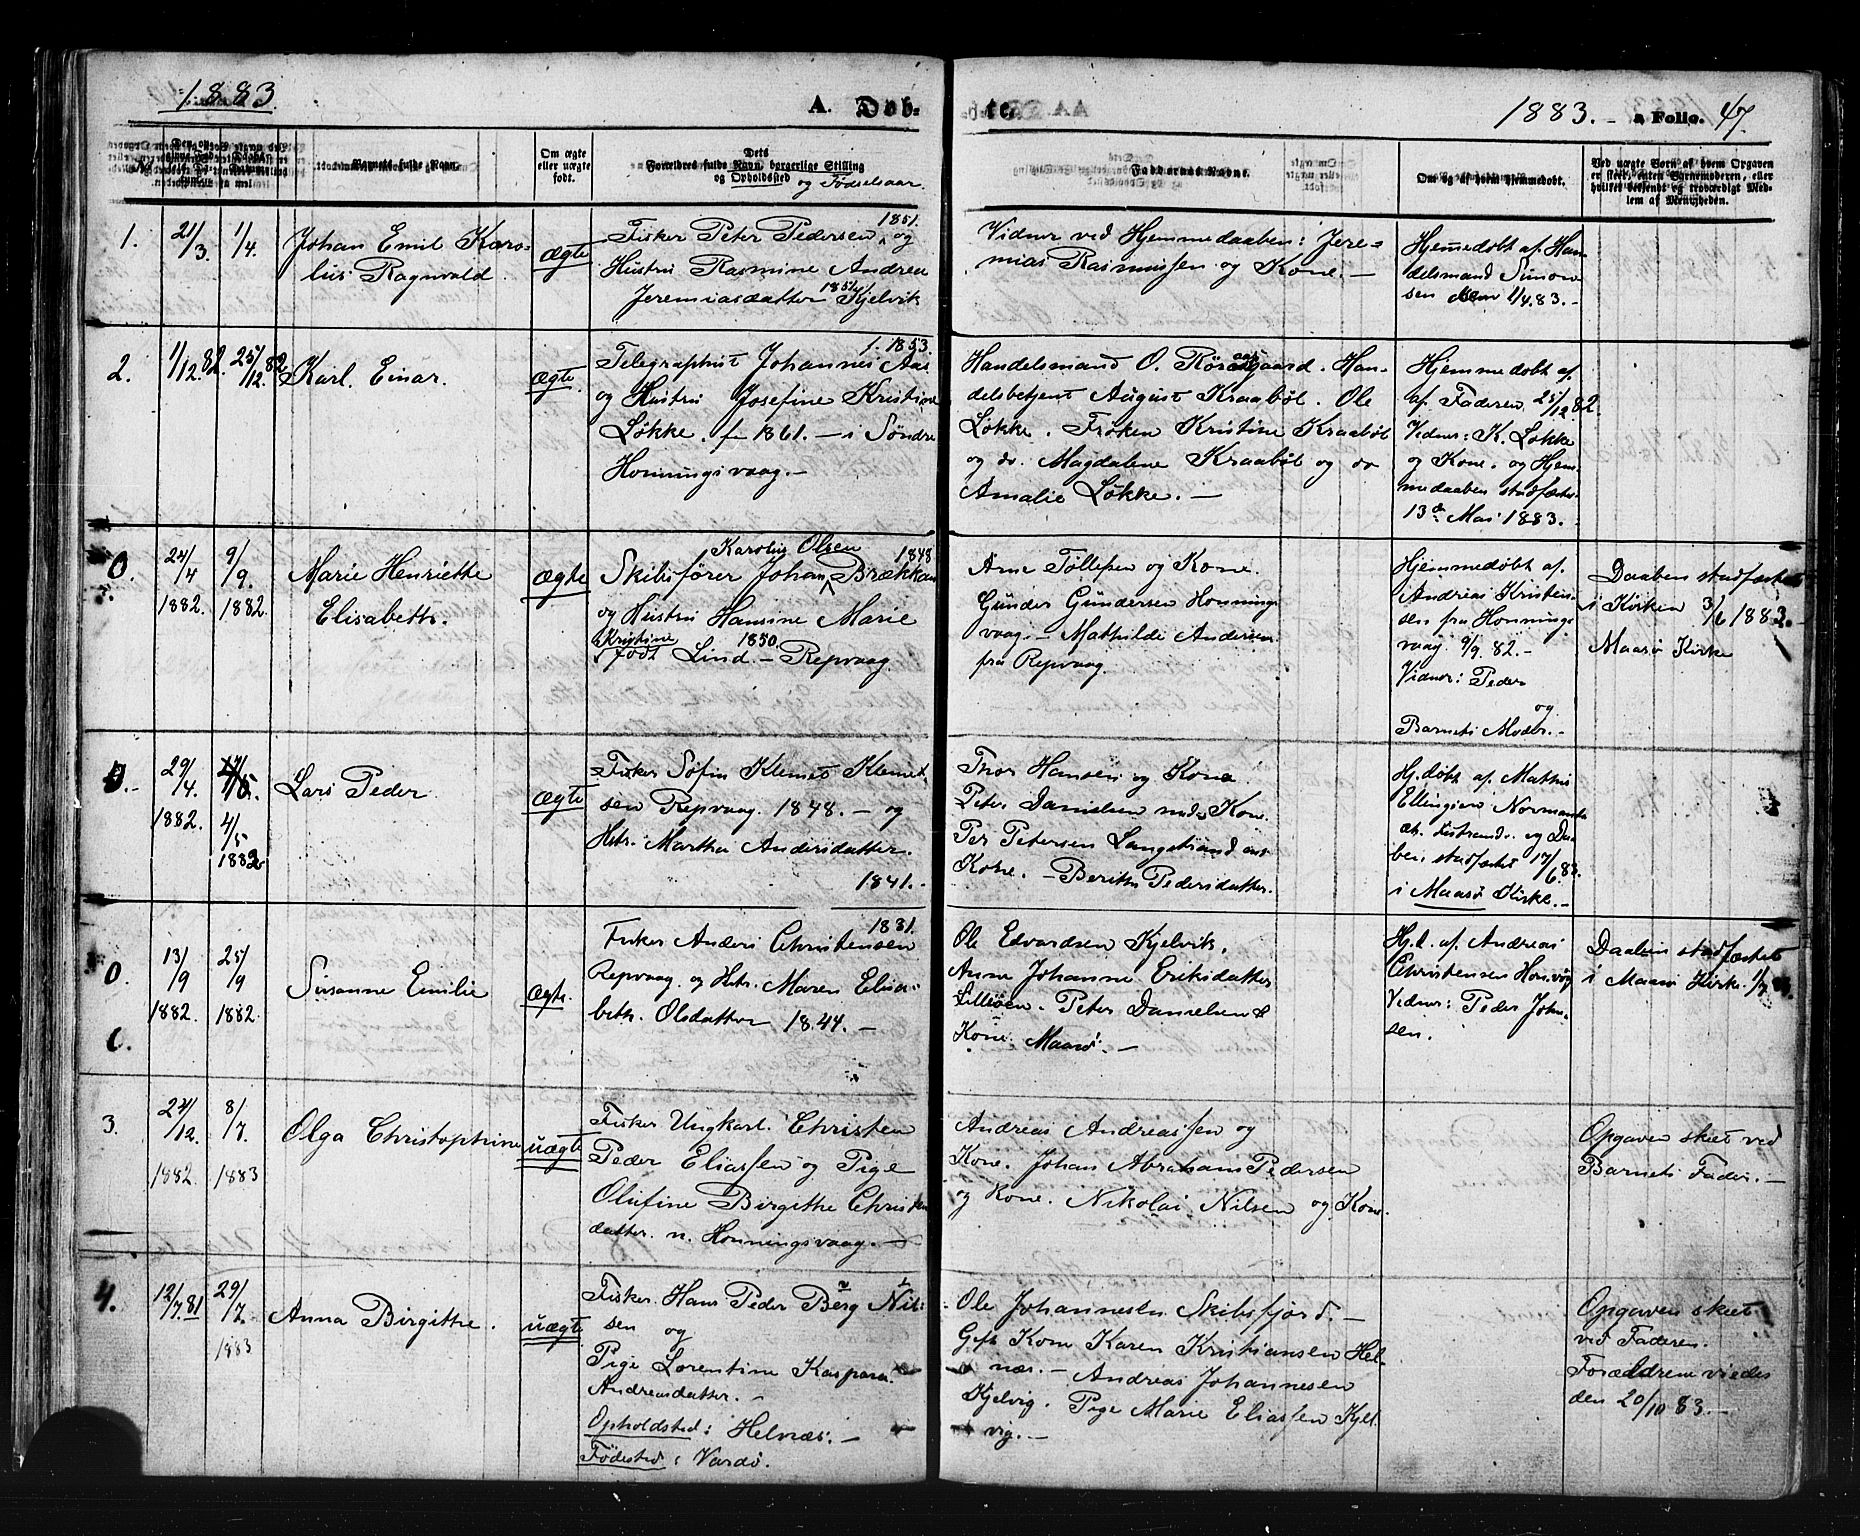 1883.
A. Døb-
te.
1883.
Folio. 47.
Barnets fulde Navn.
Om ægte
eller uægte
født.
Forældres fulde Navn, borgerlige Stilling
og Opholdssted
og Fødselsaar.
Faddernes Navne.
Om og af hvem hjemmedøbt.
Ved uægte Børn af hvem Opgaven
er skeet, enten Barnemoderen, eller
hvilket bekjendt og troværdigt Med-
lem af Menigheden.
1.
21/3
1/4
Johan Emil Karo-
lus Ragnvald.
ægte
Fisker Peter Pedersen, 1851. og
Hustru Rasmine Andrea
Jeremiasdatter 1854 Kjelvik
Vidner ved Hjemmedaaben: Jere-
mias Rasmussen og Kone. —
Hjemmedøbt af Han-
delsmand Simon-
sen den 1/4 83. —
2.
1/12. 82.
25/12. 82
Karl Einar.
ægte
f. 1853.
Telegraphist Johannes Aas
og Hustru Josefine Kristine
Løkke. f. 1861. — i Søndre
Honningsvaag. —
Handelsmand O. Rørsgaard. Han-
delsbetjent August Kraabøl. Ole
Løkke. Frøken Kristine Kraabøl
og do. Magdalene Kraabøl og do
Amalie Løkke. —
Hjemmedøbt af
af Faderen 25/12 82.
Vidner: K. Løkke
og Kone. og Hjem-
medaaben stadfæstet
13de Mai 1883.
0.
24/4
1882.
9/9.
1882.
Marie Henriette
Elisabeth.
ægte
Karolius Olsen 1848
Skibsfører Johan Brækkan
og Hustru Hansine Marie
Kristine 1850.
født Lind. — Repvaag
Arne Tollefsen og Kone.
Gunder Gundersen Honnings
vaag. — Mathilde Andersen
fra Repvaag.
Hjemmedøbt af
Andreas Kristen-
sen fra Honnings
vaag 9/9. 82. —
Vidner: Peder
og
Barnets Moder. —
Daaben stadfæstet
i Kirken 3/6 1883. —
Maasø Kirke
0. —
29/4.
1882.
4/5
1882
Lars Peder
ægte
Fisker Søfin Klemet Klemet-
sen Repvaag. 1848. — og
Htr. Martha Andersdatter.
1841. —
Thor Hansen og Kone
Peter Danielsen med Kone.
Per Petersen Langstrand og
Kone. — Berithe Pedersdatter.
Hj. døbt af Mathis
Ellingsen Normanset
. og Daa-
ben stadfæstet 17/6 83.
i Maasø Kirke. —
0.
13/9
1882.
25/9
1882.
Susanne Emilie
ægte.
1831.
Fisker Anders Christensen
Repvaag og Htr. Maren Elisa-
beth. Olsdatter 1844. —
Ole Edvardsen Kjelvik.
Anne Johanne Eriksdatter
Peter Danielsen &
Kone Maasø. —
Hj.d. af Andreas
Christensen Honvåg
Vidner: Peder John-
sen.
Daaben stadfæstet
i Maasø Kirke 1/7
3.
24/12
1882.
8/7.
1883
Olga Christophine
uægte
Fisker Ungkarl. Christen
Peder Eliassen og Pige
Olufine Birgithe Christen
datter. n. Honningsvaag. —
Andreas Andreassen og
Kone. Johan Abraham Pedersen
og Kone. Nikolai Nilsen og Kone.
Opgaven skeet ved
Barnets Fader. —
4.
12/7. 81
29/7.
1883
Anna Birgithe.
uægte
Fisker. Hans Peder Berg Nil-
sen og
Pige Lorentine Kaspara
Andreasdatter. —
Opholdsted: Helnæs. —
Fødested: Vardø.
Ole Johannesen Skibsfjord. —
Gift Kone Karen Kristiansen Hel-
næs. — Andreas Johannesen
Kjelvig. Pige Marie Eliassen Kjel-
vig. —
Opgaven skeet
ved Faderen.
Forældrene viedes
den 20/10 83. —